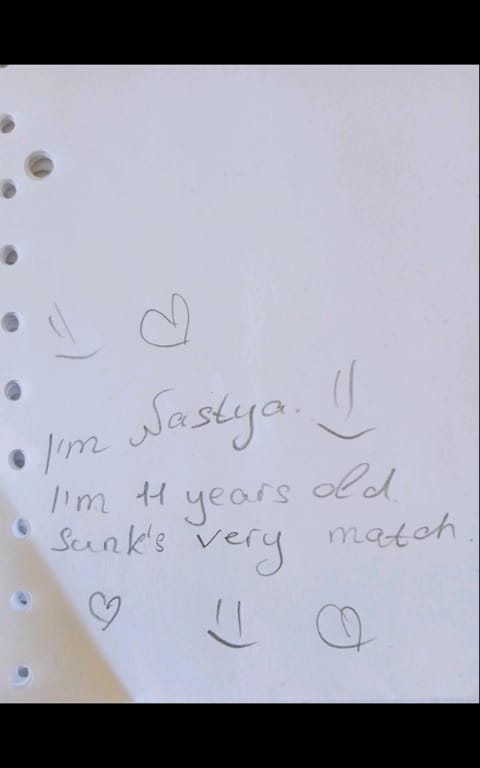 I'm Nastya.
I'm 11 years old.
Sank's very match.